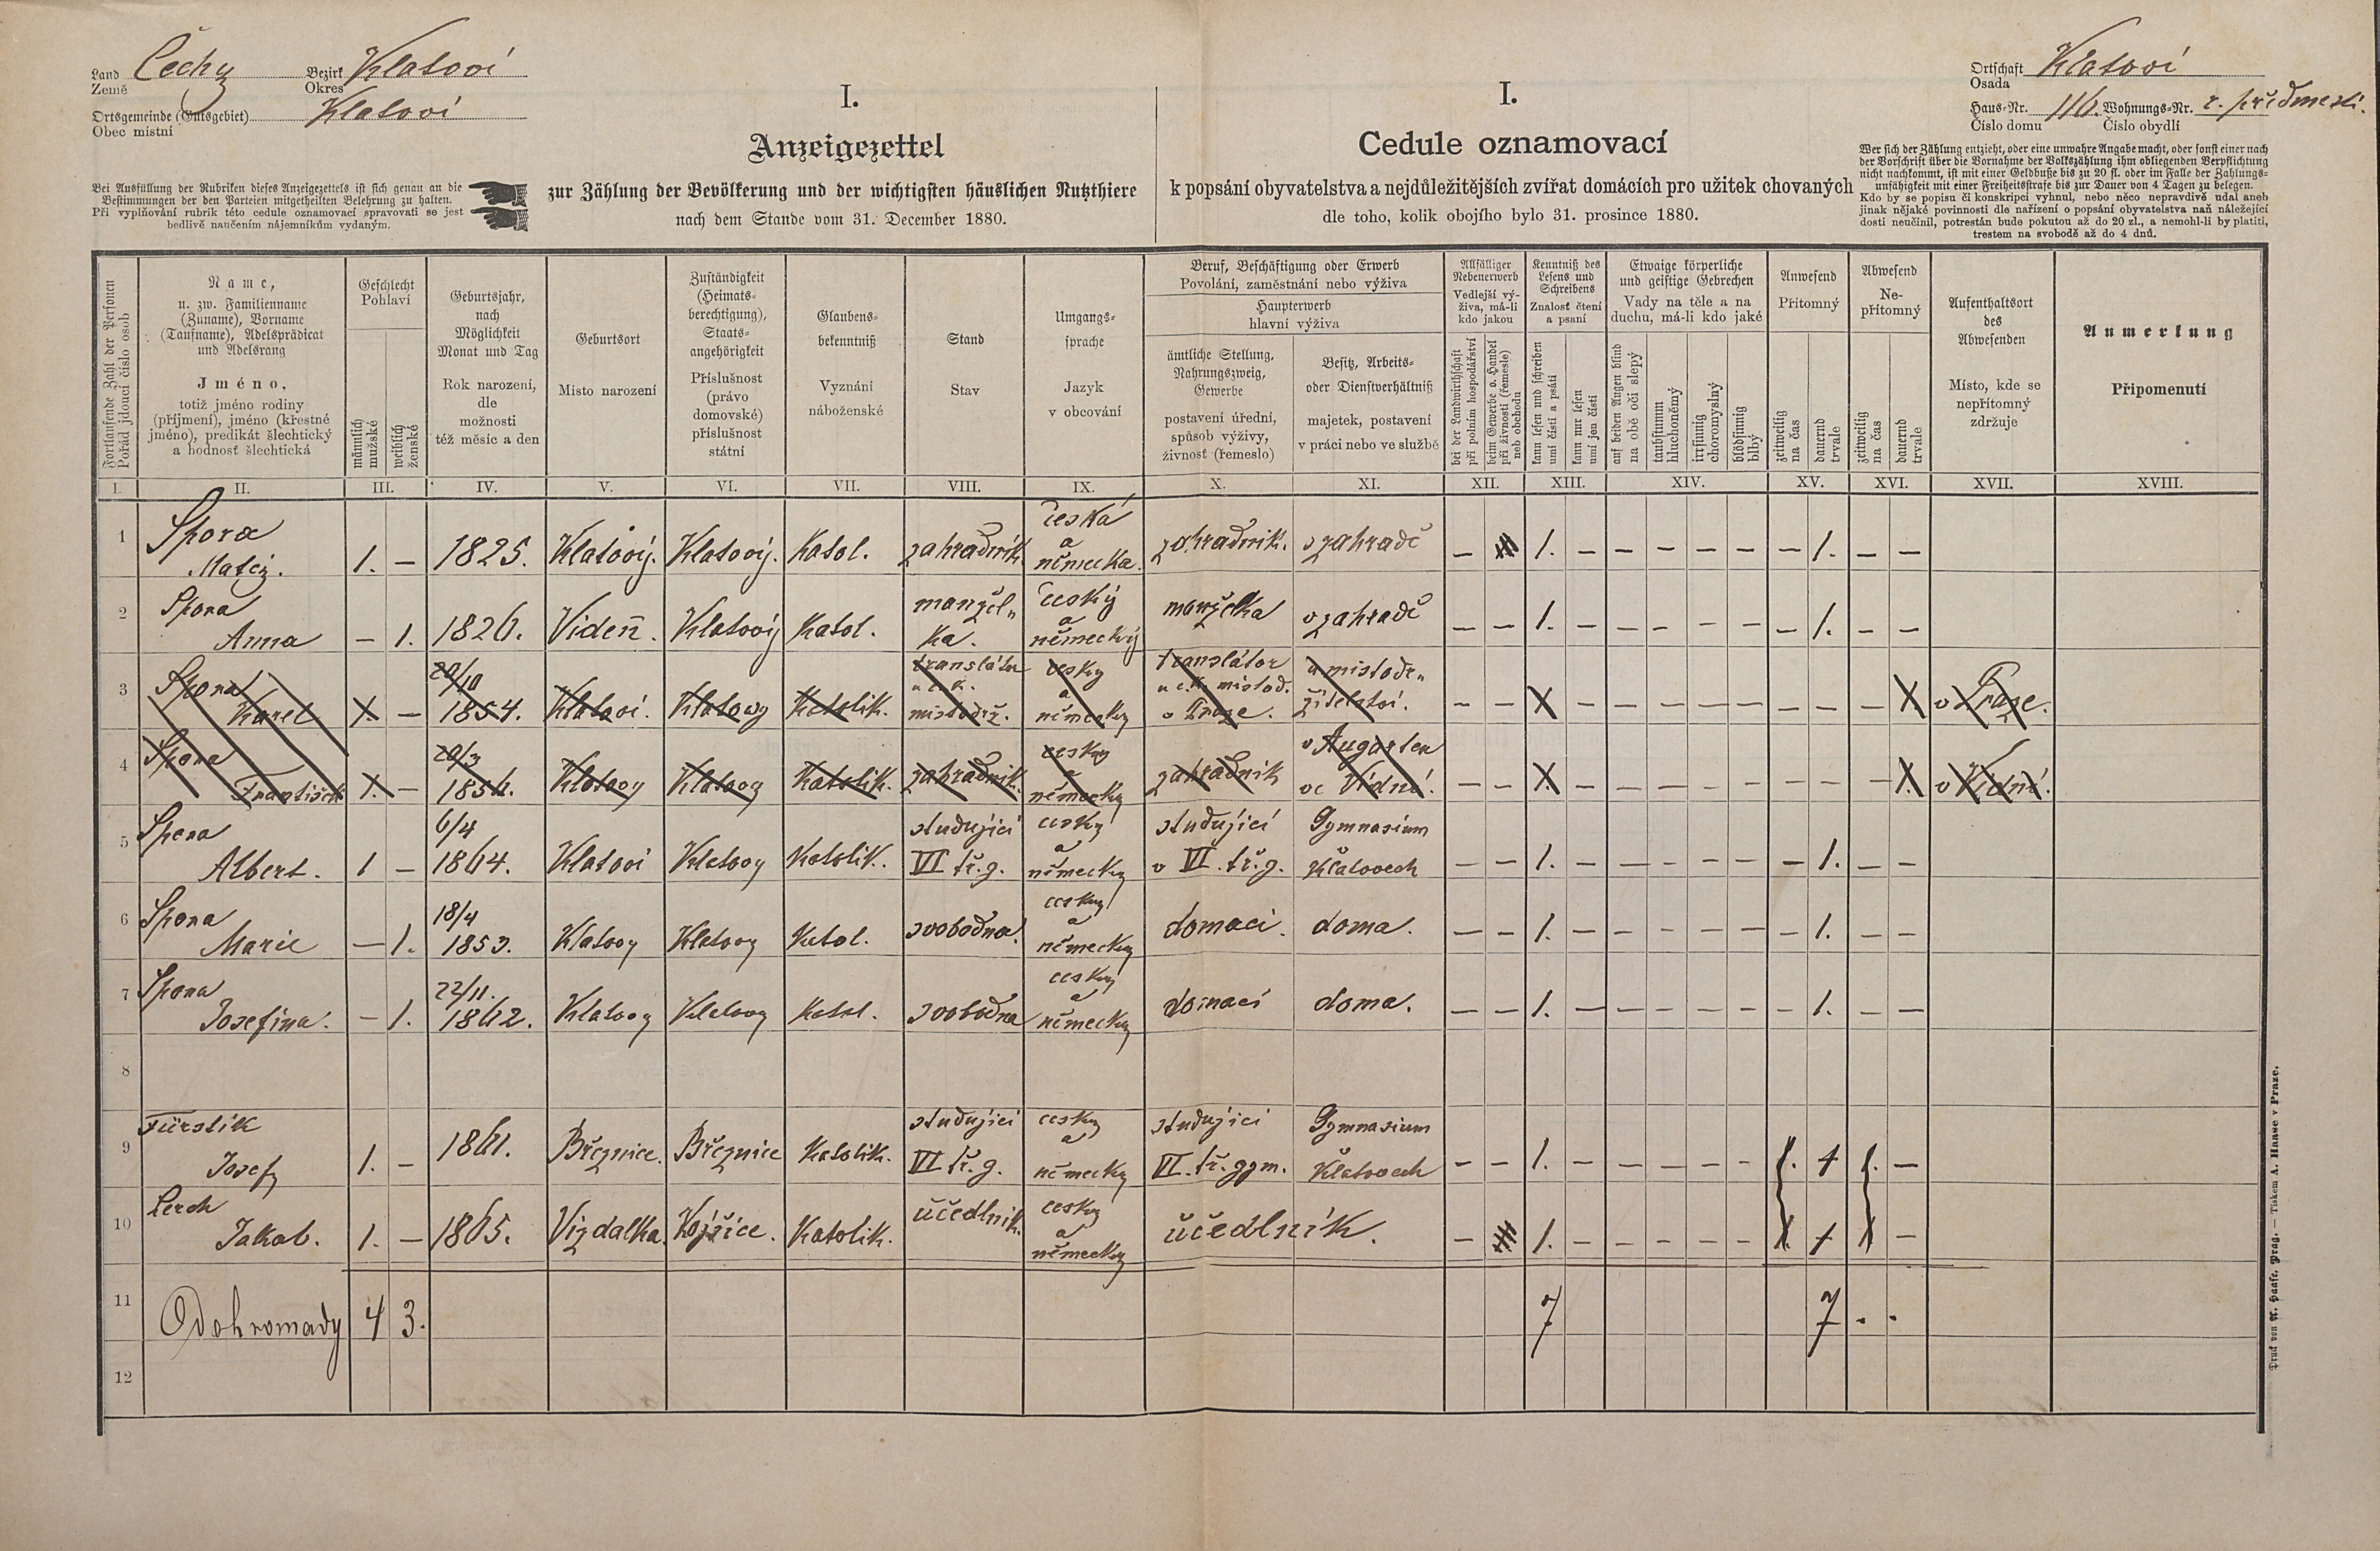 Land Čechy Bezirk Klatovi
Země Okres
Ortsgemeinde (Gutsgebiet) Klatovi
Obec místní
Bei Ausfüllung der Rubriken dieses Anzeigezettels ist sich genau an die
Bestimmungen der den Parteien mitgetheilten Belehrung zu halten.
Při vyplňování rubrik této cedule oznamovací spravovati se jest
bedlivě naučením nájemníkům vydaným.
I.
Anzeigezettel
zur Zählung der Bevölkerung und der wichtigsten häuslichen Nutzthiere
nach dem Stande vom 31. December 1880.
I.
Cedule oznamovací
k popsání obyvatelstva a nejdůležitějších zvířat domácích pro užitek chovaných
dle toho, kolik obojího bylo 31. prosince 1880.
Ortschaft Klatovi
Osada
Haus-Nr. 116. Wohnungs-Nr. r. předmesti.
Číslo domu Číslo obydlí
Wer sich der Zählung entzieht, oder eine unwahre Angabe macht, oder sonst einer nach
der Vorschrift über die Vornahme der Volkszählung ihm obliegenden Verpflichtung
nicht nachkommt, ist mit einer Geldbuße bis zu 20 fl. oder im Falle der Zahlungs-
unfähigkeit mit einer Freiheitsstrafe bis zur Dauer von 4 Tagen zu belegen.
Kdo by se popisu či konskripci vyhnul, nebo něco nepravdivě udal aneb
jinak nějaké povinnosti dle nařízení o popsání obyvatelstva naň náležející
dosti neučinil, potrestán bude pokutou až do 20 zl., a nemohl-li by platiti,
trestem na svobodě až do 4 dnů.
Fortlaufende Zahl der Personen
Pořád jdoucí číslo osob
Name,
u. zw. Familienname
(Zuname), Vorname
(Taufname), Adelsprädicat
und Adelsrang
Jméno,
totiž jméno rodiny
(příjmení), jméno (křestné
jméno), predikát šlechtický
a hodnosť šlechtická
Geschlecht
Pohlaví
männlich
mužské
weiblich
ženské
Geburtsjahr,
nach
Möglichkeit
Monat und Tag
Rok narození,
dle
možnosti
též měsíc a den
Geburtsort
Místo narození
Zuständigkeit
(Heimats-
berechtigung),
Staats-
angehörigkeit
Příslušnost
(právo
domovské)
příslušnost
státní
Glaubens-
bekenntniß
Vyznání
náboženské
Stand
Stav
Umgangs-
sprache
Jazyk
v obcování
Beruf, Beschäftigung oder Erwerb
Povolání, zaměstnání nebo výživa
Haupterwerb
hlavní výživa
ämtliche Stellung,
Nahrungszweig,
Gewerbe
postavení úřední,
spůsob výživy,
živnosť (řemeslo)
Besitz, Arbeits-
oder Dienstverhältniß
majetek, postavení
v práci nebo ve službě
Allfälliger
Nebenerwerb
Vedlejší vý-
živa, má-li
kdo jakou
bei der Landwirthschaft
při polním hospodářství
beim Gewerbe o. Handel
při živnosti (řemesle)
neb obchodu
Kenntniß des
Lesens und
Schreibens
Znalosť čtení
a psaní
kann lesen und schreiben
umí čísti a psáti
kann nur lesen
umí jen čísti
Etwaige körperliche
und geistige Gebrechen
Vady na těle a na
duchu, má-li kdo jaké
auf beiden Augen blind
na obě oči slepý
taubstumm
hluchoněmý
irrsinnig
choromyslný
blödsinnig
blbý
Anwesend
Přítomný
zeitweilig
na čas
dauernd
trvale
Abwesend
Ne-
přítomný
zeitweilig
na čas
dauernd
trvale
Aufenthaltsort
des
Abwesenden
Místo, kde se
nepřítomný
zdržuje
Anmerkung
Připomenutí
I. II. III. IV. V. VI. VII. VIII. IX. X. XI. XII. XIII. XIV. XV. XVI. XVII. XVIII.
1 Spora Matěj. 1. – 1825. Klatovij. Klatovij. Katol. zahradník česká a německa. zahradník. v zahradě – 1. – – – – – – 1. – –
2 Spora Anna – 1. 1826. Videň. Klatovij Katol. manžel„ ka. český a německý manželka v zahradě – – 1. – – – – – – 1. – –
3 Spora Karel 1. – 20/10 1854. Klatovi. Klatovy Katolik. translátor u c.k. mistodrž. česky a německy translátor u c.k. mistod. v Praze. u mistodr„ žitelství. – – 1 – – – – – – – – 1 v Praze.
4 Spora František 1. – 20/3 1856. Klatovy Klatovy Katolik. zahradník. česky a německy zahradník v Augarten ve Vídni. – – 1. – – – – – – – – 1. v Vidni.
5 Spora Albert. 1 – 6/4 1864. Klatovi Klatovy Katolik. studující VI tř. g. český a německy studující v VI. tř. g. Gymnasium v Klatovech – – 1. – – – – – – 1. – –
6 Spora Marie – 1. 18/4 1853. Klatovy Klatovy Katol. svobodna. česky a německy domaci. doma. – – 1. – – – – – – 1. – –
7 Spora Josefina. – 1. 22/11. 1862. Klatovy Klatovy Katol. svobodna česky a německy domací doma. – – 1. – – – – – – 1. – –
8
9 Fürstik Josef 1. – 1861. Březnice. Březnice Katolik. studující VI tř. g. česky a německy studující VI. tř. gym. Gymnasium v Klatovech – – 1. – – – – – 1. 1 1. –
10 Lerch Jakob. 1. – 1865. Vizdalka. Kojšice. Katolik. učedlník. česky a německy učedlník. – 1. – – – – – 1. 1 1 –
11 Odohromady 4 3. 7 7 . .
12
Druck von A. Haase, Prag. — Tiskem A. Haase v Praze.